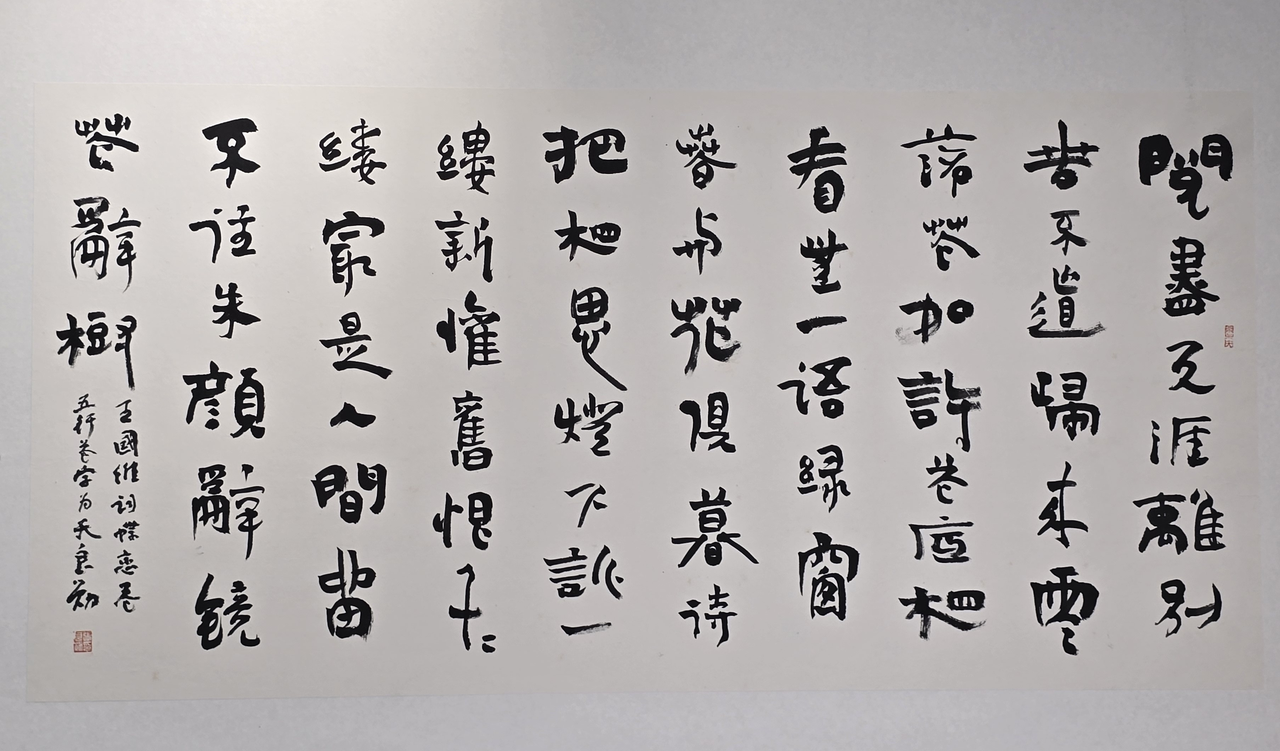 閱盡天涯離別
苦不道歸來零
落花如許花底相
看無一語緑窗
春与花俱暮待
把相思燈下訴一
縷新懽舊恨千〻
縷最是人間留
不住朱顏辭鏡
花辭樹
王國維詞蝶恋花
五行花字为天